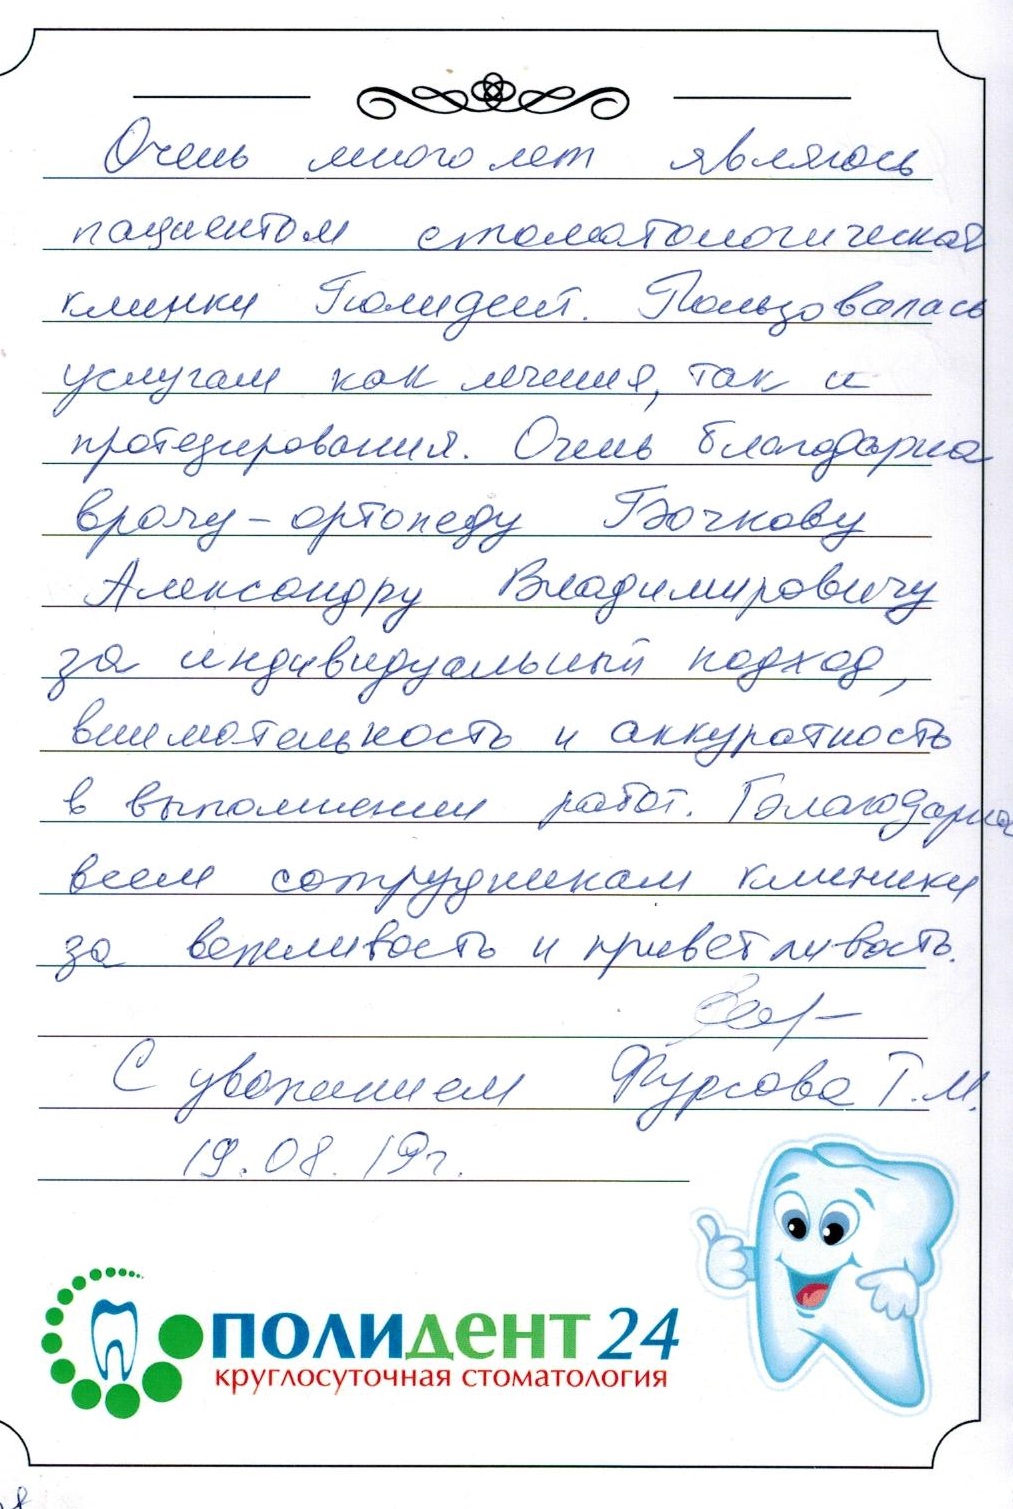 Очень много лет являюсь
пациентом стоматологической
клиники Полидент. Пользовалась
услугам как лечения, так и
протезирования. Очень благодарна
врачу-ортопеду Бочкову
Александру Владимировичу
за индивидуальный подход,
внимательность и аккуратность
в выполнении работ. Благодарна
всем сотрудникам клиники
за вежливость и приветливость.
С уважением Фурсова Т.М.
19.08.19г.
ПОЛИДЕНТ 24
круглосуточная стоматология